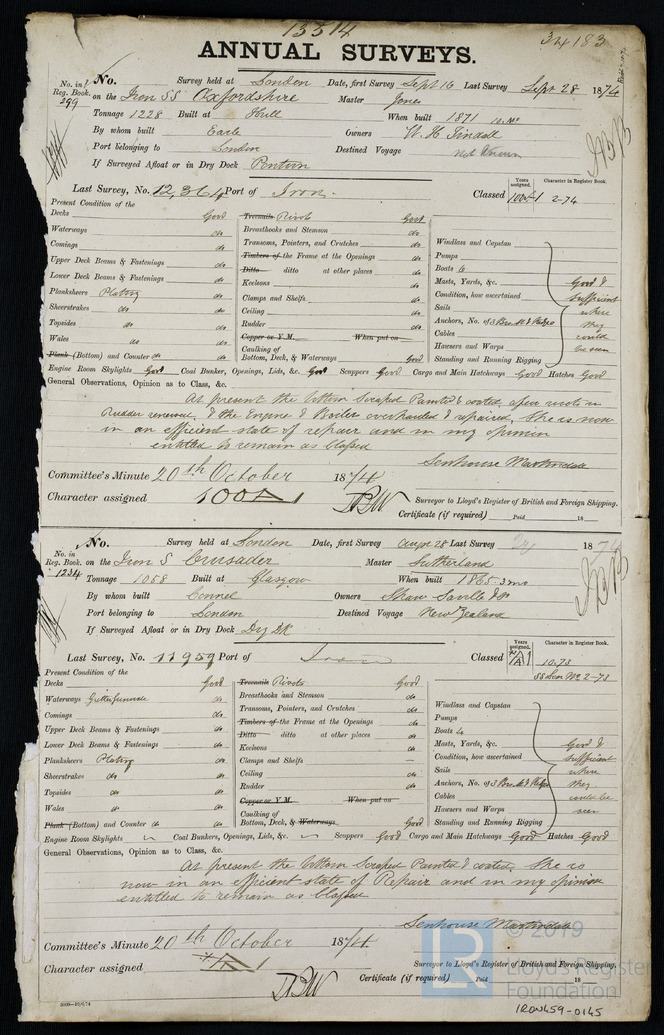 13514
34183
ANNUAL SURVEYS.
No. in Reg. Book. 299
No. Survey held at London Date, first Survey Sept 16 Last Survey Sept 28 1874
on the Iron SS Oxfordshire Master Jones
Tonnage 1228 Built at Hull When built 1871 10 Mo
By whom built Earle Owners W. H. Tindall
Port belonging to London Destined Voyage Not Known
If Surveyed Afloat or in Dry Dock Pontoon
Last Survey, No. 12,364 Port of Iron. Classed Years assigned. 100A1 Character in Register Book. 2-74
Present Condition of the
Decks Good
Waterways do
Comings do
Upper Deck Beams & Fastenings do
Lower Deck Beams & Fastenings do
Planksheers Plating do
Sheerstrakes do do
Topsides do do
Wales do do
Plank (Bottom) and Counter do do
Treenails Rivets Good
Breasthooks and Stemson do
Transoms, Pointers, and Crutches do
Timbers of the Frame at the Openings do
Ditto ditto at other places do
Keelsons do
Clamps and Shelfs do
Ceiling do
Rudder do
Copper or Y.M. When put on
Caulking of Bottom, Deck, & Waterways Good
Windlass and Capstan
Pumps
Boats 6
Masts, Yards, &c.
Condition, how ascertained
Sails
Anchors, No. of 3
Cables
Hawsers and Warps
Standing and Running Rigging
Good & sufficient where they could be seen
Engine Room Skylights Good Coal Bunkers, Openings, Lids, &c. Good Scuppers Good Cargo and Main Hatchways Good Hatches Good
General Observations, Opinion as to Class, &c.
At present the bottom Scraped Painted & coated, a few rivets in
Rudder renewed, & the Engine & Boiler overhauled & repaired, She is now
in an efficient state of repair and in my opinion
entitled to remain as Classed
Senhouse Martindale
Committee's Minute 20th October 1874
Character assigned 100A1
Surveyor to Lloyd's Register of British and Foreign Shipping.
Certificate (if required) Paid 18
No. in Reg. Book. 1234
No. Survey held at London Date, first Survey Augt 28 Last Survey 1874
on the Iron S Crusader Master Sutherland
Tonnage 1058 Built at Glasgow When built 1865 3mo
By whom built Connel Owners Shaw Saville & Co
Port belonging to London Destined Voyage New Zealand
If Surveyed Afloat or in Dry Dock Dry Dk
Last Survey, No. 11959 Port of Iron Classed Years assigned. A1 Character in Register Book. 10-73
SS Lon No 2-73
Present Condition of the
Decks Good
Waterways Gutterways do
Comings do
Upper Deck Beams & Fastenings do
Lower Deck Beams & Fastenings do
Planksheers Plating do
Sheerstrakes do do
Topsides do do
Wales do do
Plank (Bottom) and Counter do do
Treenails Rivets Good
Breasthooks and Stemson do
Transoms, Pointers, and Crutches do
Timbers of the Frame at the Openings do
Ditto ditto at other places do
Keelsons do
Clamps and Shelfs —
Ceiling do
Rudder do
Copper or Y.M. When put on
Caulking of Bottom, Deck, & Waterways Good
Windlass and Capstan
Pumps
Boats 4
Masts, Yards, &c.
Condition, how ascertained
Sails
Anchors, No. of 3
Cables
Hawsers and Warps
Standing and Running Rigging
Good & sufficient where they could be seen
Engine Room Skylights Coal Bunkers, Openings, Lids, &c. Scuppers Good Cargo and Main Hatchways Good Hatches Good
General Observations, Opinion as to Class, &c.
At present the bottom Scraped Painted & coated, She is
now in an efficient state of Repair and in my opinion
entitled to remain as Classed
Senhouse Martindale
Committee's Minute 20th October 1874
Character assigned A1
Surveyor to Lloyd's Register of British and Foreign Shipping.
Certificate (if required) Paid 18
LR
© 2019
Lloyd's Register
Foundation
IRON459-0145